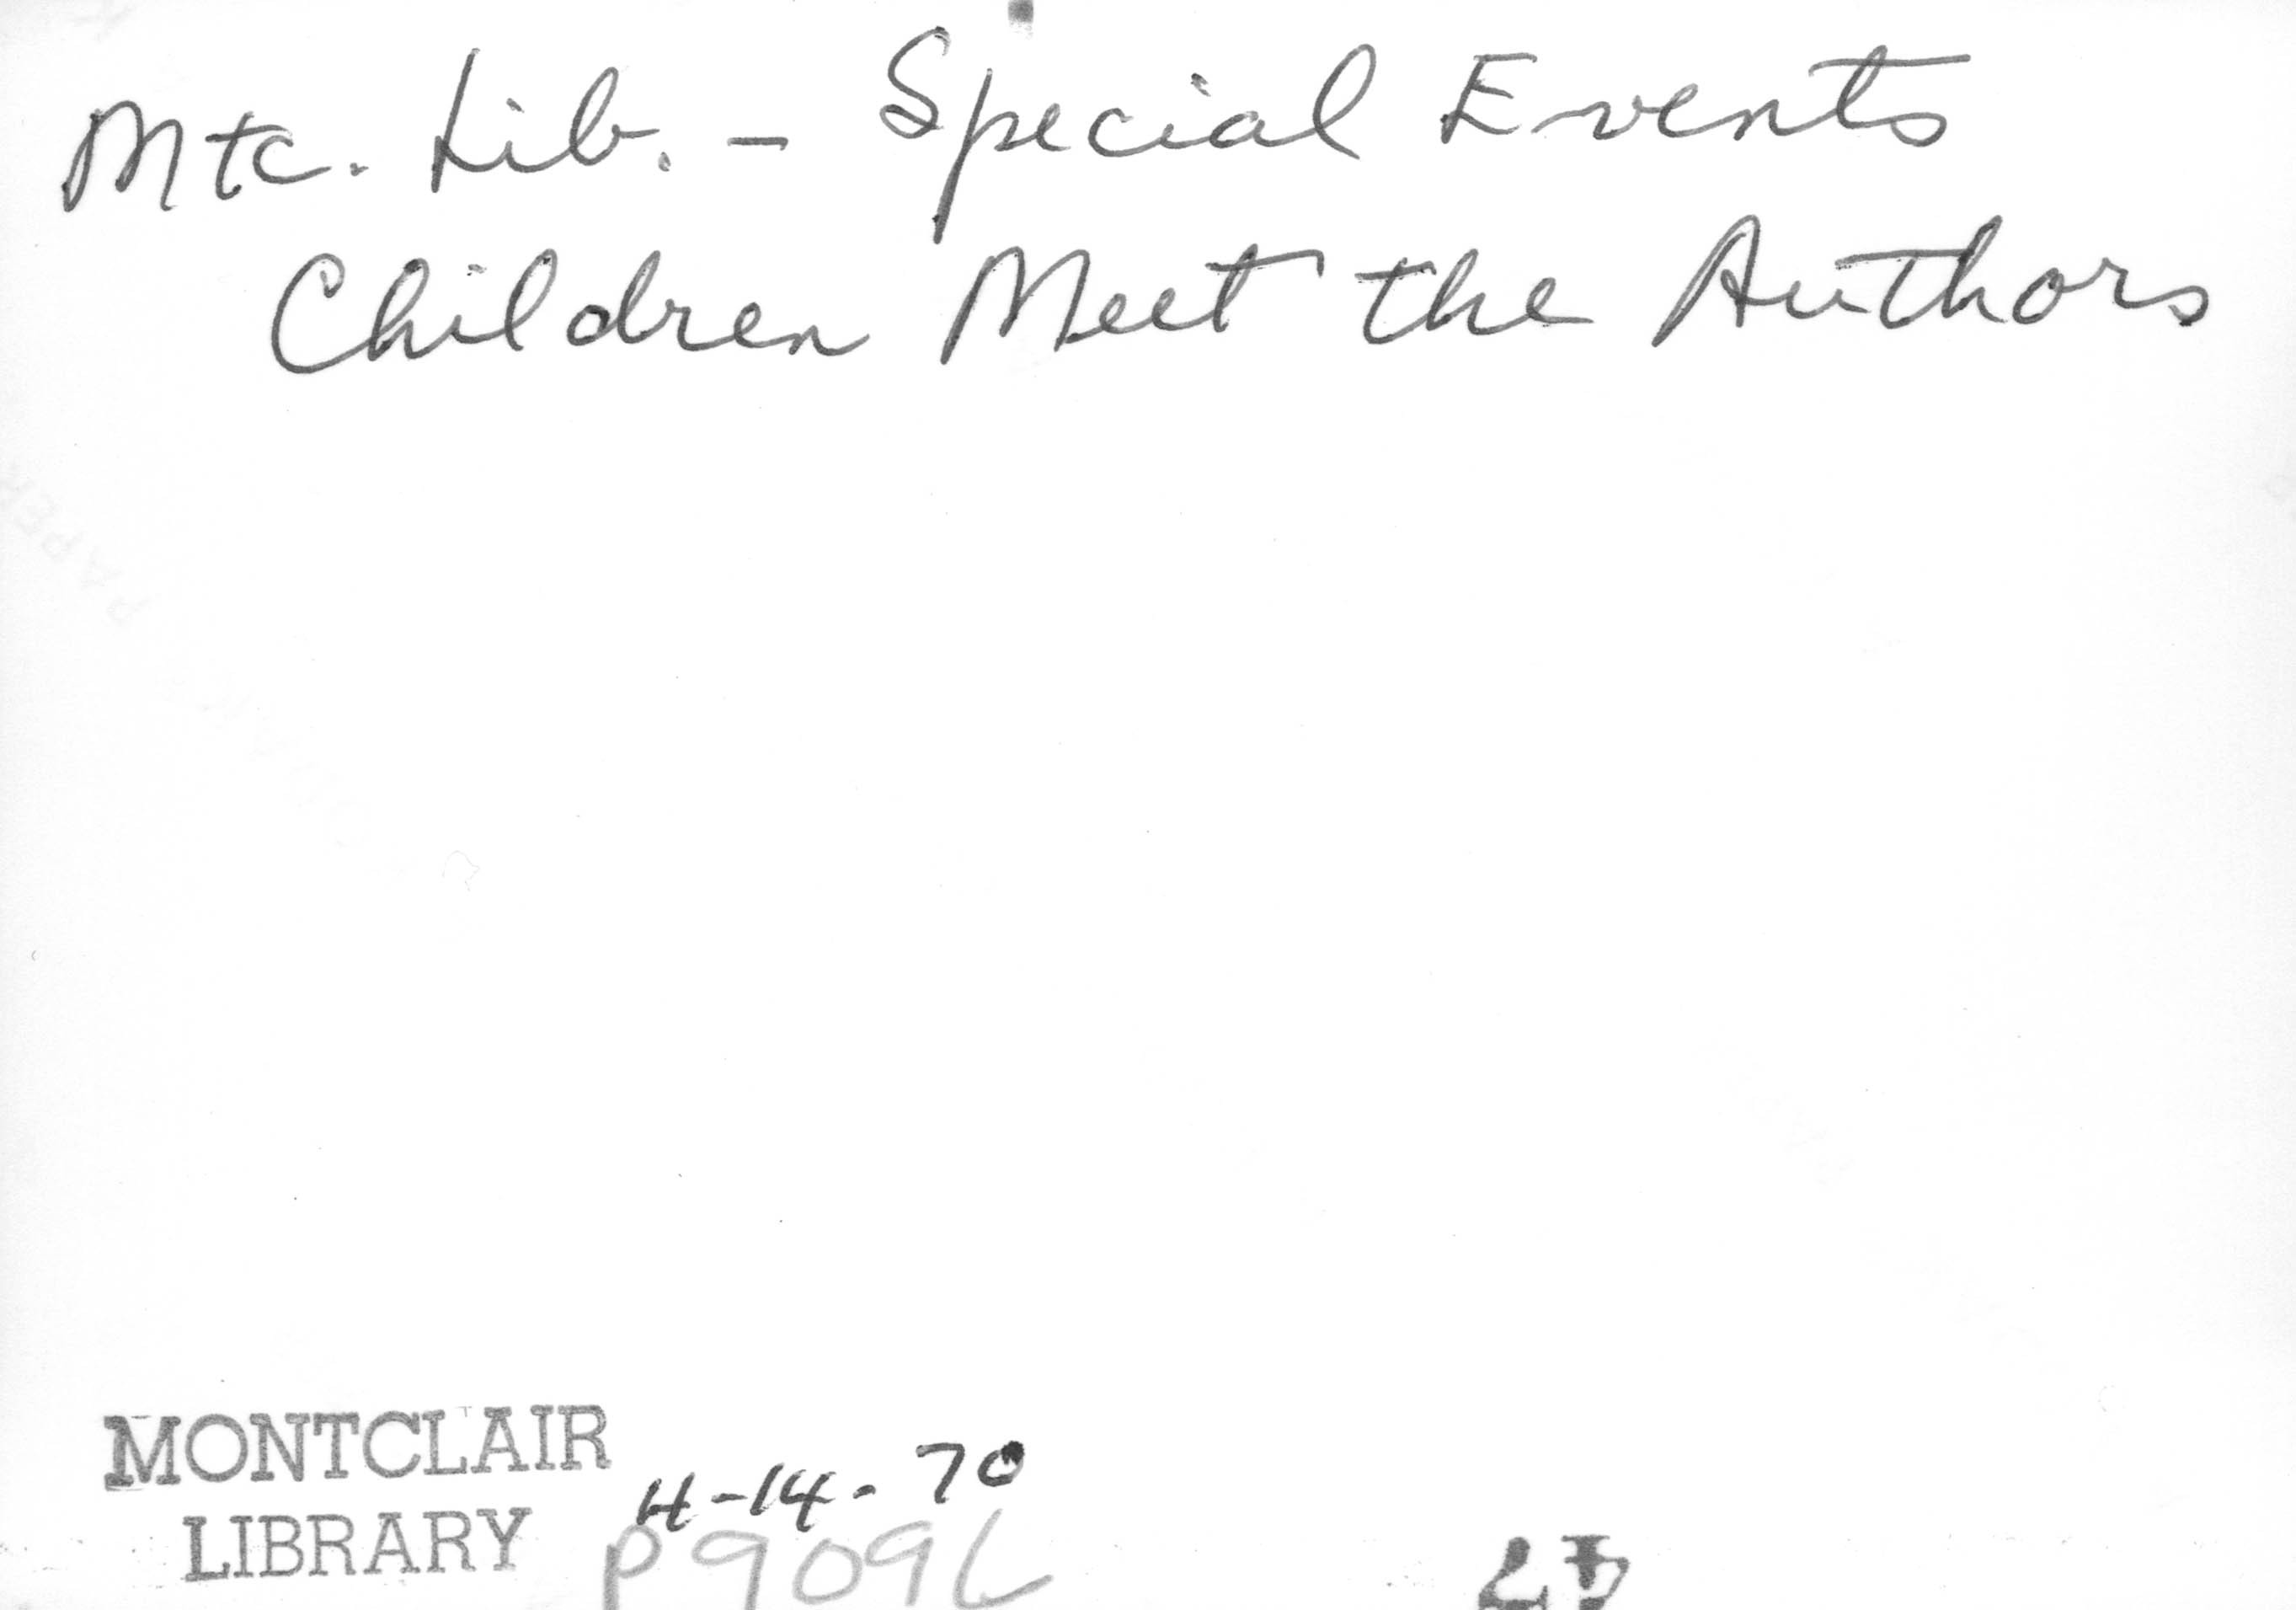 Mtc. Lib. - Special Events
Children Meet the Authors
PAPER
MONTCLAIR
LIBRARY
4-14-70
P909L